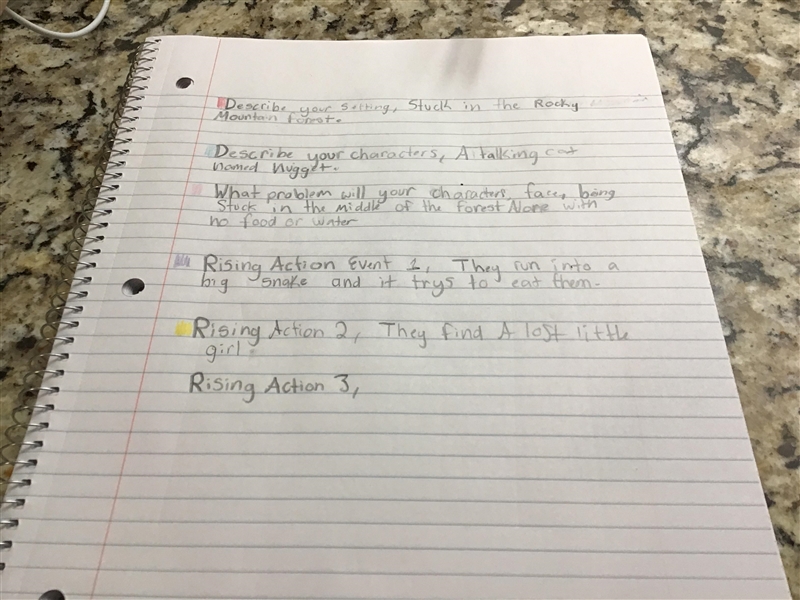 Describe your setting, Stuck in the Rocky
Mountain Forest.
Describe your characters, A talking cat
named Nugget.
What problem will your characters face, being
Stuck in the Middle of the Forest with
no food or water
Rising Action Event 1, They run into a
big snake and it trys to eat them.
Rising Action 2, They find A lost little
girl.
Rising Action 3,